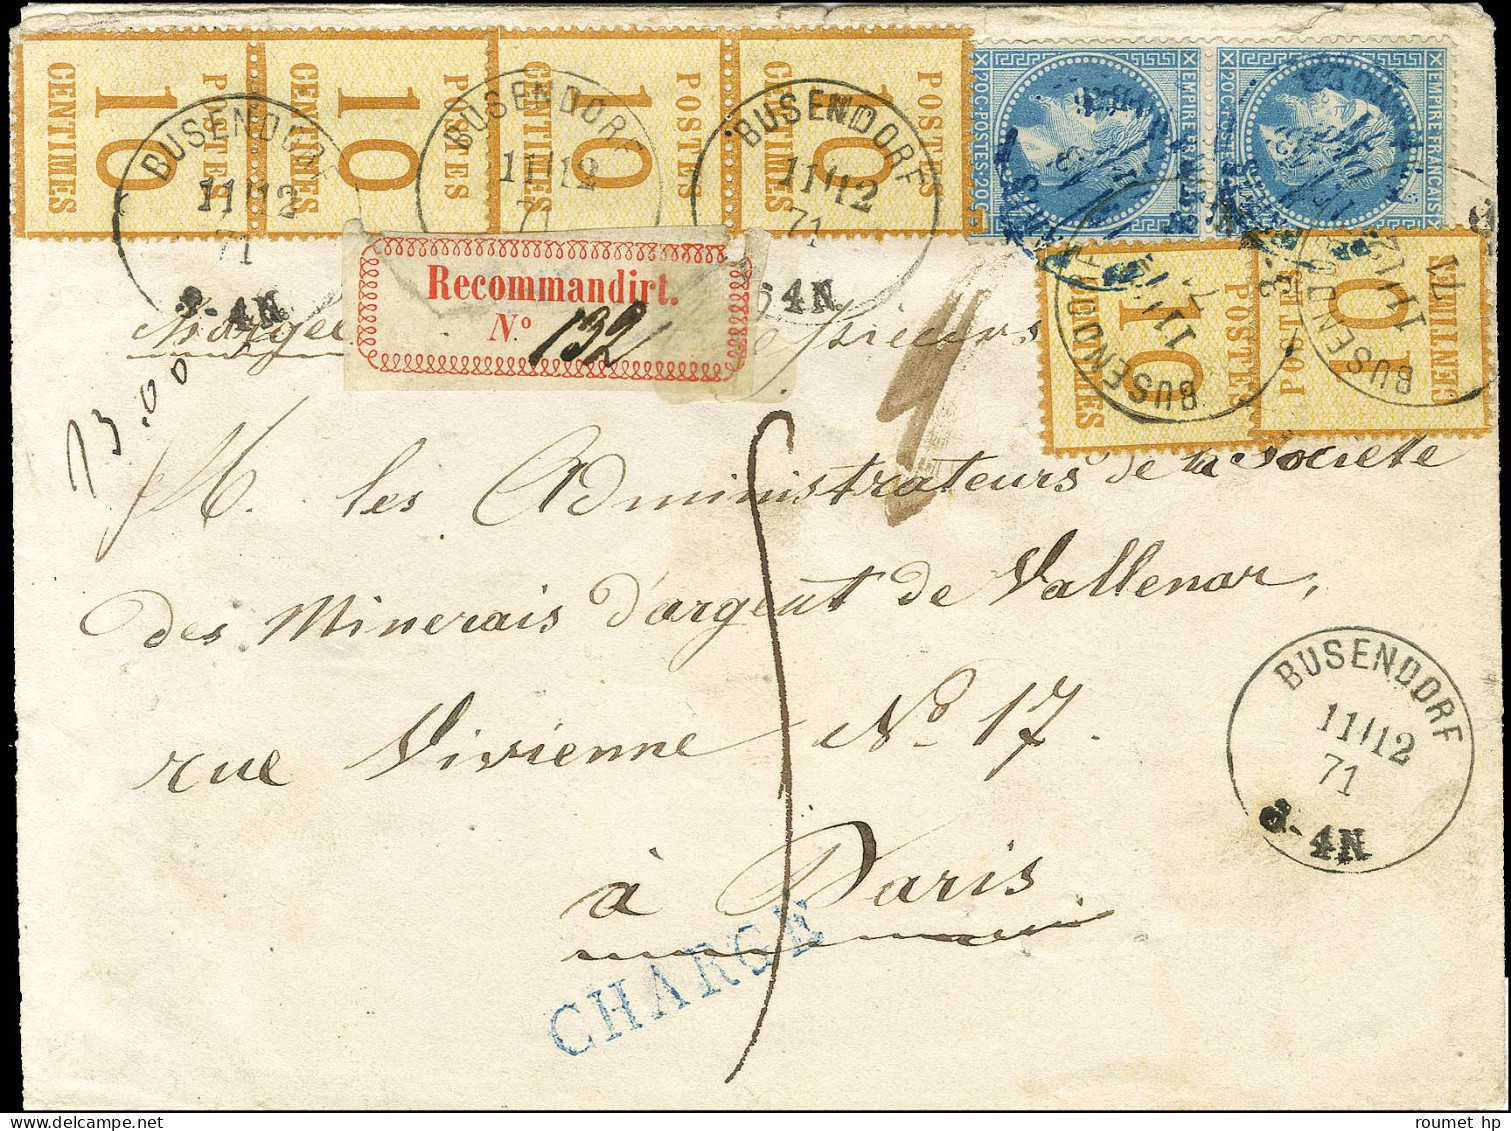 POSTES 10 CENTIMES
POSTES 10 CENTIMES
POSTES 10 CENTIMES
POSTES 10 CENTIMES
EMPIRE FRANÇAIS 20C POSTES 20C
EMPIRE FRANÇAIS 20C POSTES 20C
BUSENDORF 11/12 71 3-4N
BUSENDORF 11/12 71
BUSENDORF 11/12 71 4N
Recommandirt.
No. 132
Chargée
13.00
POSTES 10 CENTIMES
POSTES 10 CENTIMES
BUSENDORF 11/12
BUSENDORF 11/12 71
M. les Administrateurs de la Société
des Minerais d'argent de Vallenar,
rue Vivienne No 17.
à Paris
BUSENDORF
11/12
71
3-4N
CHARGÉ
roumet hp